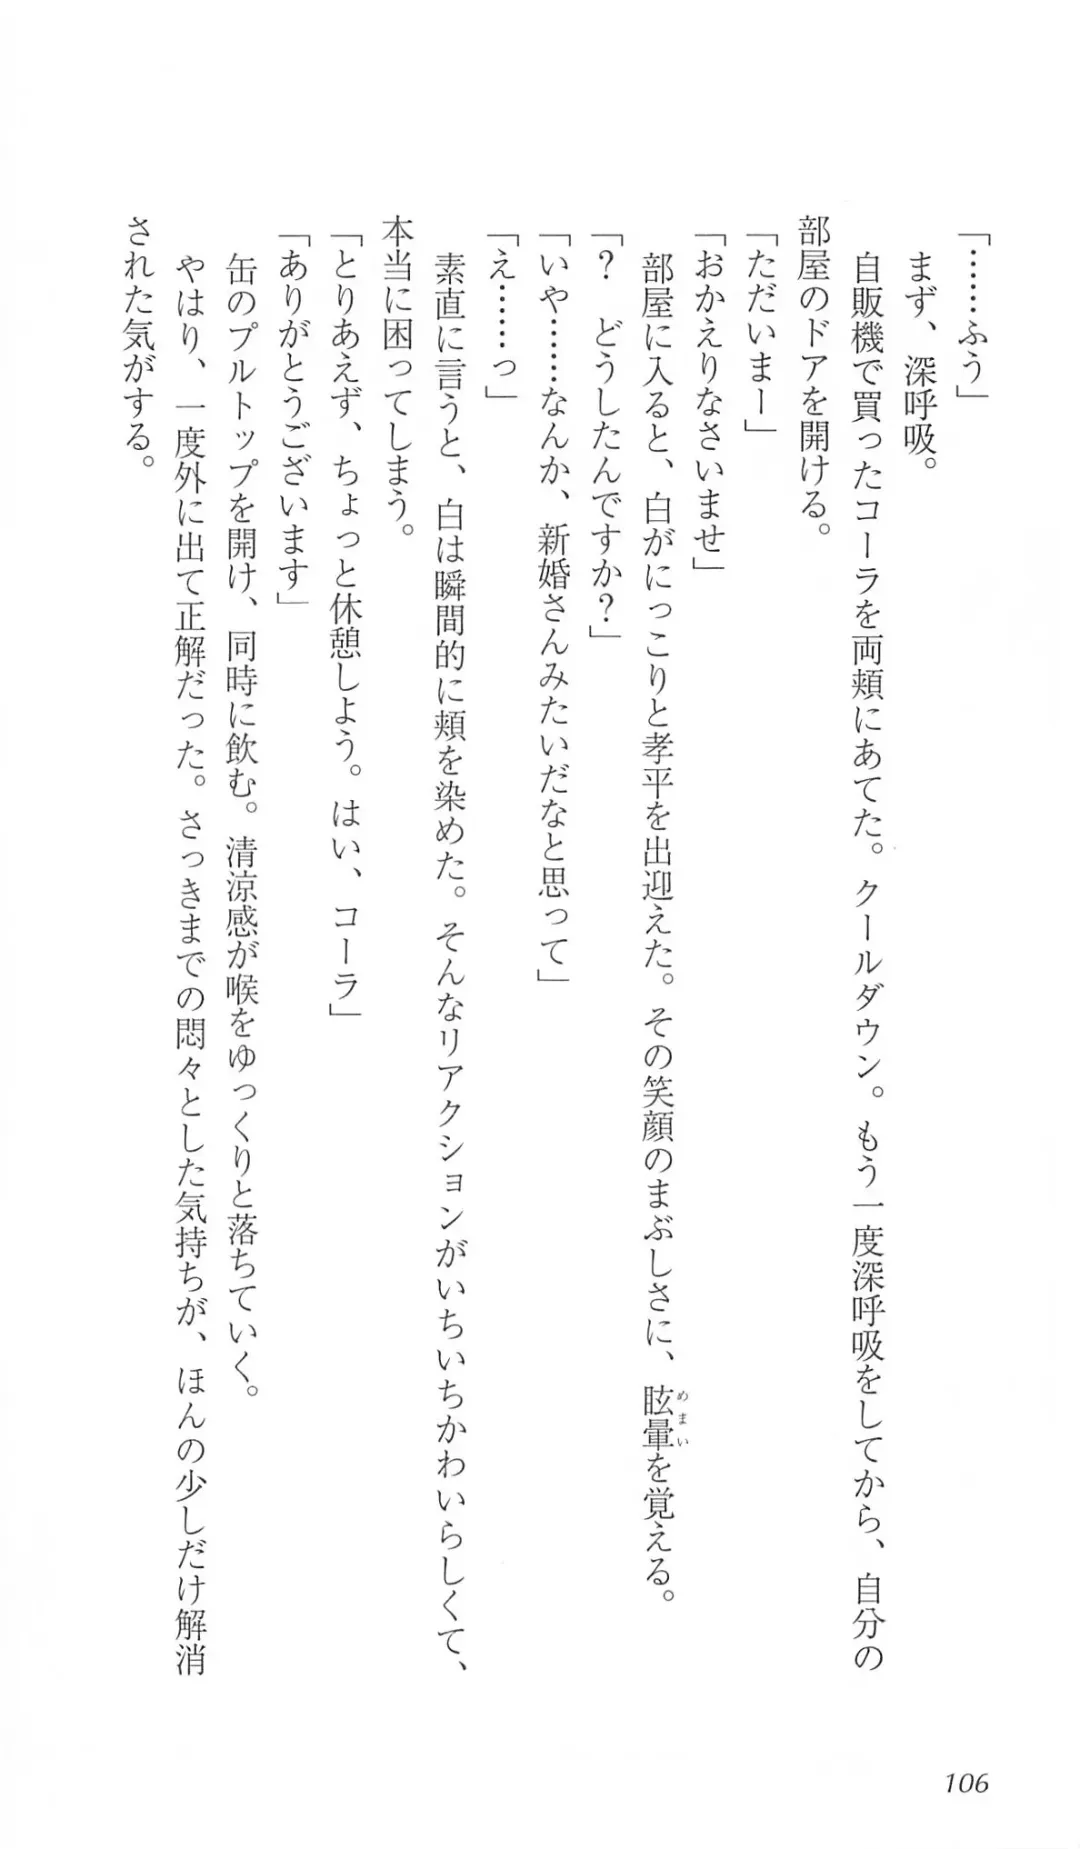 「……ふう」
まず、深呼吸。
自販機で買ったコーラを両頬にあてた。クールダウン。もう一度深呼吸をしてから、自分の
部屋のドアを開ける。
「ただいまー」
「おかえりなさいませ」
部屋に入ると、白がにっこりと孝平を出迎えた。その笑顔のまぶしさに、眩暈を覚える。
めまい
「?　どうしたんですか?」
「いや……なんか、新婚さんみたいだなと思って」
「え……っ」
素直に言うと、白は瞬間的に頬を染めた。そんなリアクションがいちいちかわいらしくて、
本当に困ってしまう。
「とりあえず、ちょっと休憩しよう。はい、コーラ」
「ありがとうございます」
缶のプルトップを開け、同時に飲む。清涼感が喉をゆっくりと落ちていく。
やはり、一度外に出て正解だった。さっきまでの悶々とした気持ちが、ほんの少しだけ解消
された気がする。
106